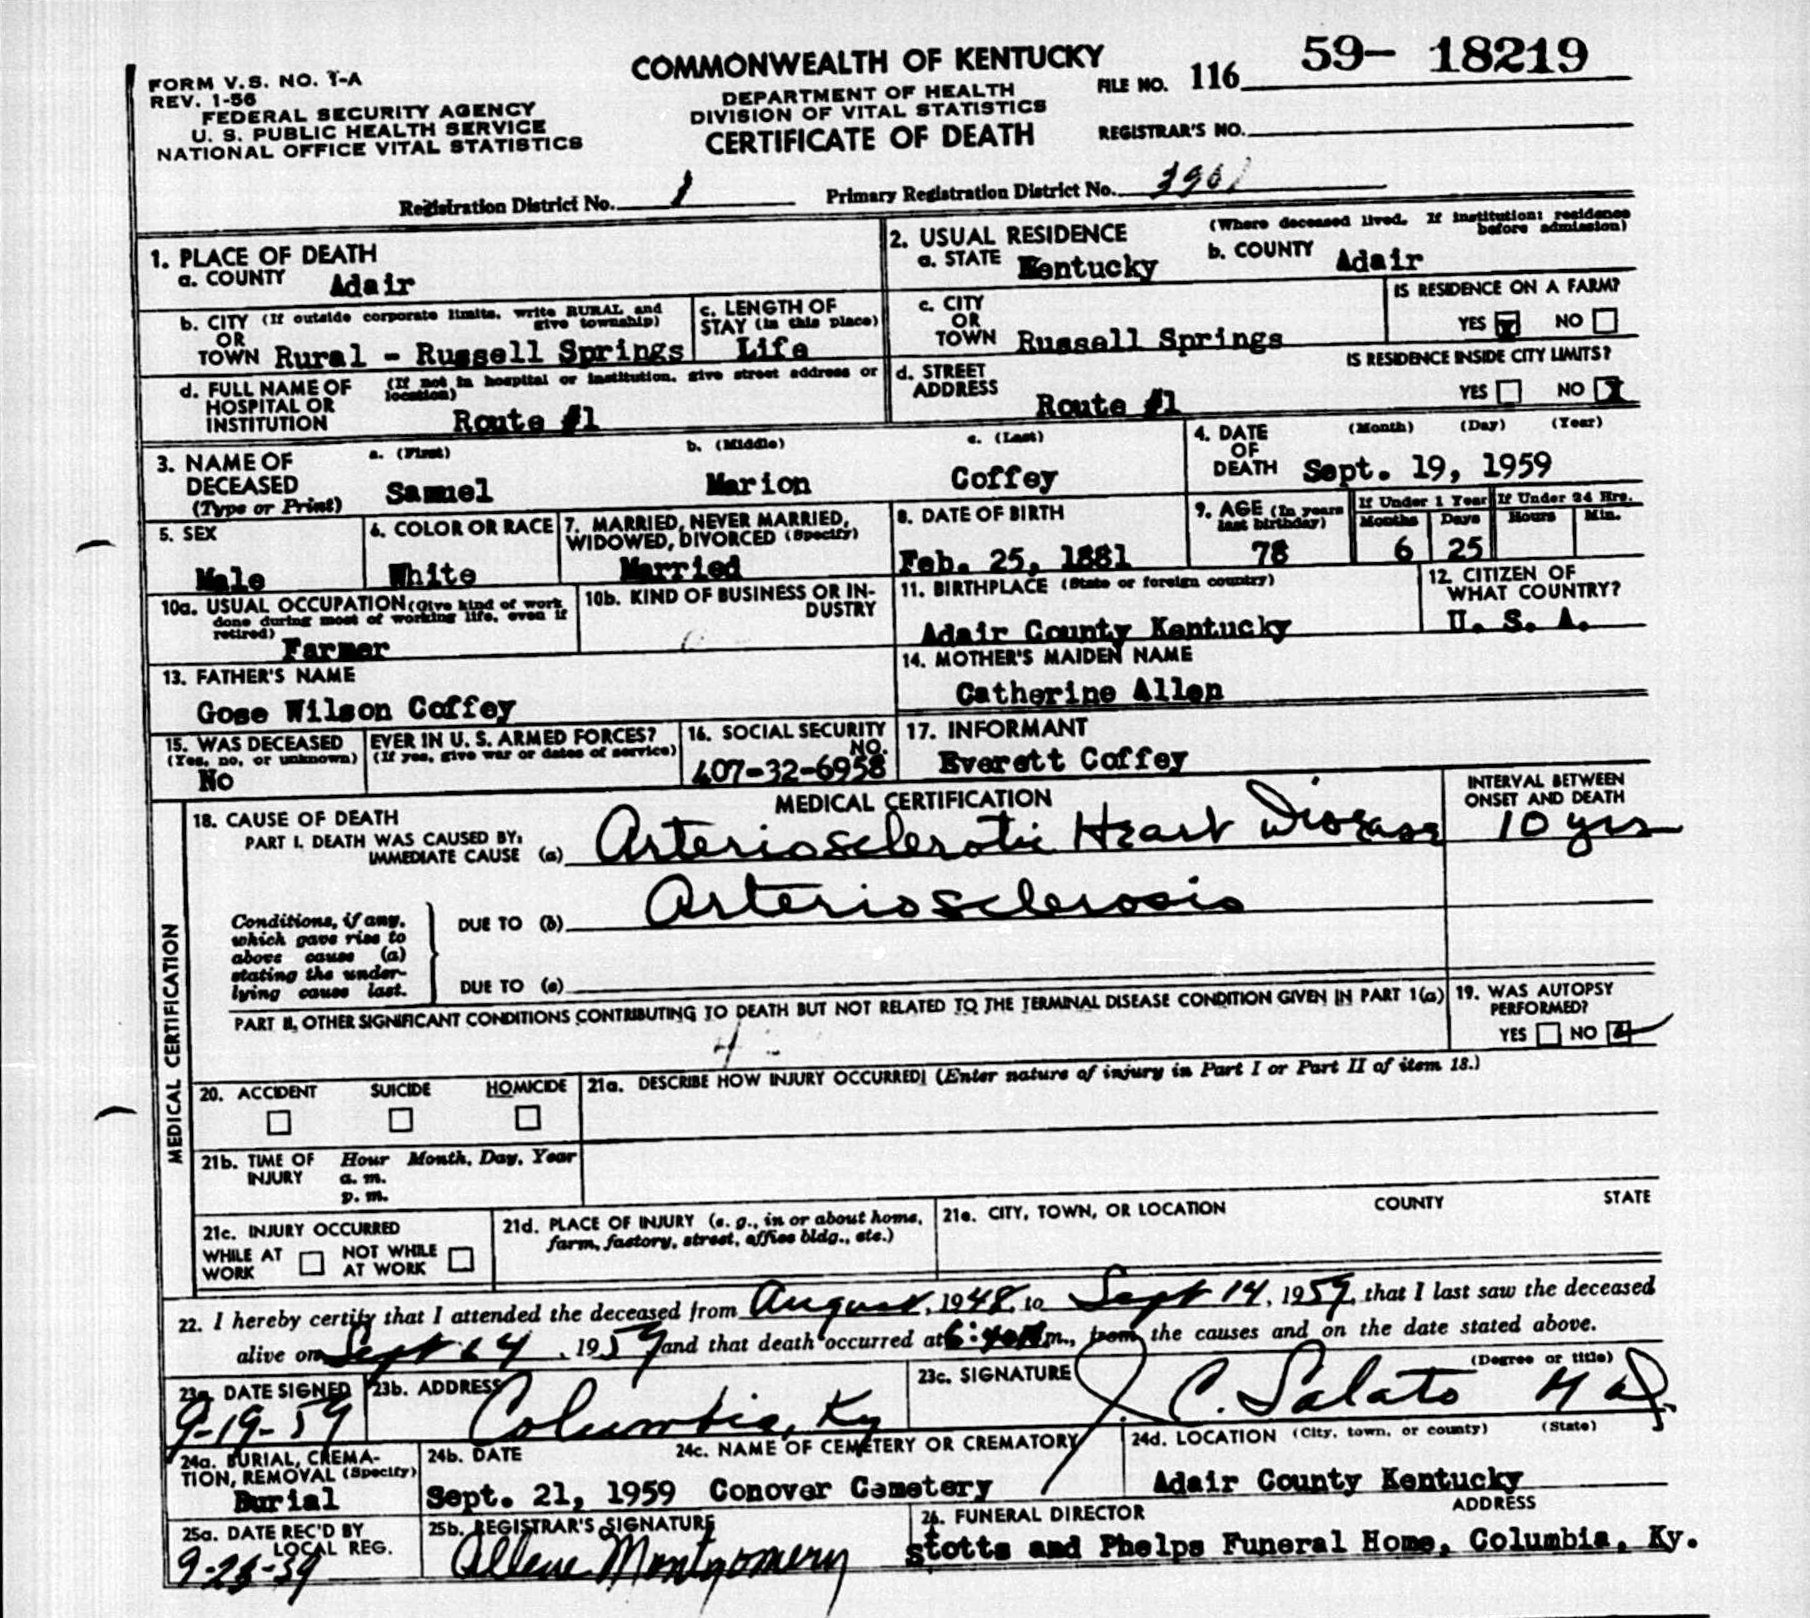 FORM V.S. NO. 1-A
REV. 1-56
FEDERAL SECURITY AGENCY
U. S. PUBLIC HEALTH SERVICE
NATIONAL OFFICE VITAL STATISTICS
COMMONWEALTH OF KENTUCKY
DEPARTMENT OF HEALTH
DIVISION OF VITAL STATISTICS
CERTIFICATE OF DEATH
FILE NO. 116 59- 18219
REGISTRAR'S NO.
Registration District No. 1
Primary Registration District No.
1. PLACE OF DEATH
a. COUNTY Adair
2. USUAL RESIDENCE (Where deceased lived. If institution: residence before admission)
a. STATE Kentucky b. COUNTY Adair
b. CITY (If outside corporate limits, write RURAL and give township)
OR
TOWN Rural - Russell Springs
c. LENGTH OF STAY (in this place)
Life
c. CITY
OR
TOWN Russell Springs
IS RESIDENCE ON A FARM?
YES X NO
d. FULL NAME OF HOSPITAL OR INSTITUTION (If not in hospital or institution, give street address or location)
Route #1
d. STREET ADDRESS
Route #1
IS RESIDENCE INSIDE CITY LIMITS?
YES NO X
3. NAME OF DECEASED (Type or Print)
a. (First) b. (Middle) c. (Last)
Samuel Marion Coffey
4. DATE OF DEATH (Month) (Day) (Year)
Sept. 19, 1959
5. SEX
Male
6. COLOR OR RACE
White
7. MARRIED, NEVER MARRIED, WIDOWED, DIVORCED (Specify)
Married
8. DATE OF BIRTH
Feb. 25, 1881
9. AGE (In years last birthday)
78
If Under 1 Year
Months Days
6 25
If Under 24 Hrs.
Hours Min.
10a. USUAL OCCUPATION (Give kind of work done during most of working life, even if retired)
Farmer
10b. KIND OF BUSINESS OR INDUSTRY
11. BIRTHPLACE (State or foreign country)
Adair County Kentucky
12. CITIZEN OF WHAT COUNTRY?
U. S. A.
13. FATHER'S NAME
Gose Wilson Coffey
14. MOTHER'S MAIDEN NAME
Catherine Allen
15. WAS DECEASED EVER IN U. S. ARMED FORCES?
(Yes, no, or unknown) (If yes, give war or dates of service)
No
16. SOCIAL SECURITY NO.
407-32-6958
17. INFORMANT
Everett Coffey
MEDICAL CERTIFICATION
MEDICAL CERTIFICATION
18. CAUSE OF DEATH
PART I. DEATH WAS CAUSED BY:
IMMEDIATE CAUSE (a) Arteriosclerotic Heart Disease
INTERVAL BETWEEN ONSET AND DEATH
10 yrs
Conditions, if any, which gave rise to above cause (a) stating the underlying cause last.
DUE TO (b) Arteriosclerosis
DUE TO (c)
PART II. OTHER SIGNIFICANT CONDITIONS CONTRIBUTING TO DEATH BUT NOT RELATED TO THE TERMINAL DISEASE CONDITION GIVEN IN PART 1(a)
19. WAS AUTOPSY PERFORMED?
YES NO
20. ACCIDENT SUICIDE HOMICIDE
21a. DESCRIBE HOW INJURY OCCURRED! (Enter nature of injury in Part I or Part II of item 18.)
21b. TIME OF INJURY Hour Month, Day, Year
a. m.
p. m.
21c. INJURY OCCURRED
WHILE AT WORK NOT WHILE AT WORK
21d. PLACE OF INJURY (e. g., in or about home, farm, factory, street, office bldg., etc.)
21e. CITY, TOWN, OR LOCATION COUNTY STATE
22. I hereby certify that I attended the deceased from August, 1948, to Sept 14, 1959, that I last saw the deceased
alive on Sept 14, 1959 and that death occurred at m., from the causes and on the date stated above.
23a. DATE SIGNED
9-19-59
23b. ADDRESS
Columbia, Ky
23c. SIGNATURE (Degree or title)
C. Salato M D
24a. BURIAL, CREMATION, REMOVAL (Specify)
Burial
24b. DATE
Sept. 21, 1959
24c. NAME OF CEMETERY OR CREMATORY
Conover Cemetery
24d. LOCATION (City, town, or county) (State)
Adair County Kentucky
25a. DATE REC'D BY LOCAL REG.
25b. REGISTRAR'S SIGNATURE
Allene Montgomery
26. FUNERAL DIRECTOR ADDRESS
Stotts and Phelps Funeral Home, Columbia, Ky.